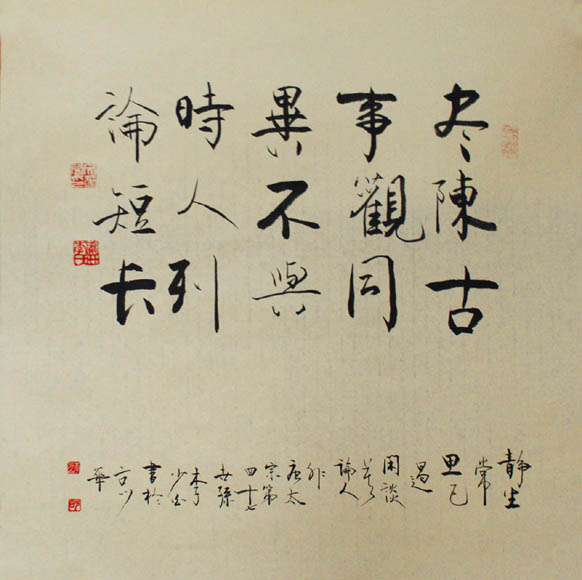 尽陳古
事觀同
異不與
時人列
論短长
静坐
常
思己
過
閑談
莫
論人
非
唐太
宗第
四十七
世孫
李
少
書於
華